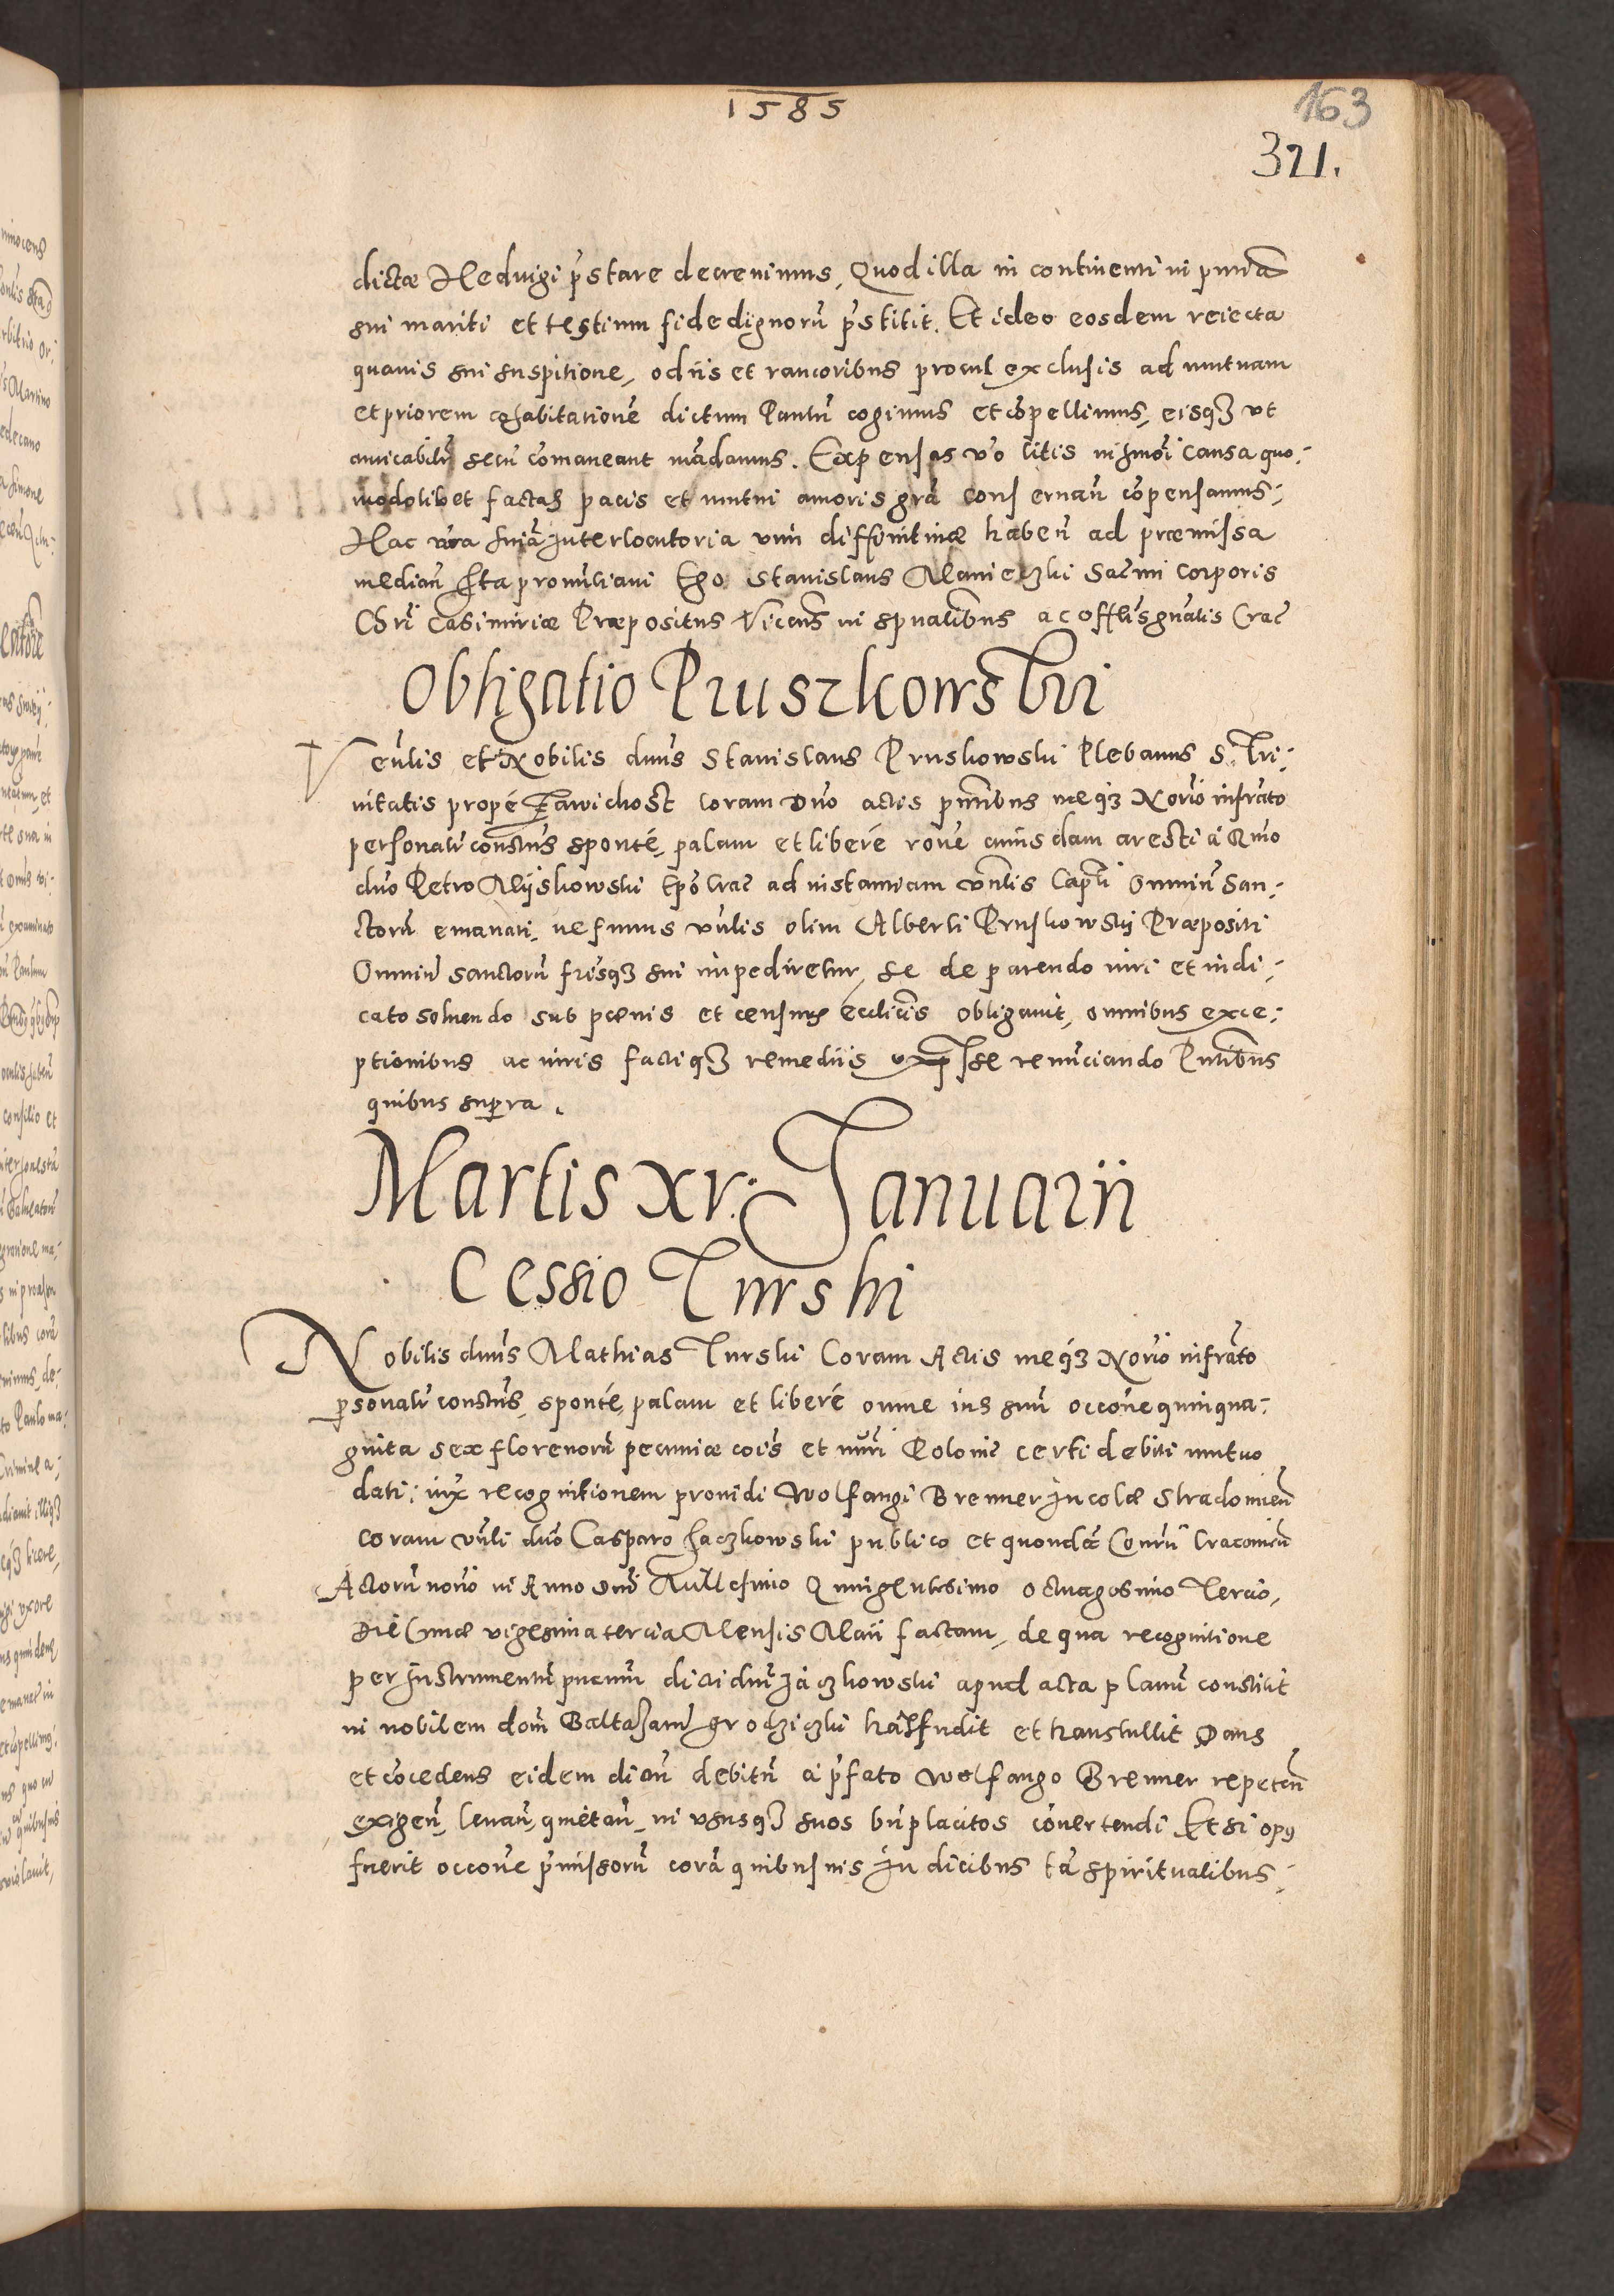 1585
163
321.
dictæ Hedvigi p̃stare decrevimus, Quod illa in continenti in pñtia
sui mariti et testium fide dignorũ p̃stitit. Et ideo eosdem reiecta
quavis sui suspitione, odiis et rancoribus procul exclusis ad mutuam
et priorem cohabitationẽ dictum Paulũ cogimus et cõpellimus, eisqꝫ ut
amicabilr̃ secũ cõmaneant mãdamus. Expensas vo litis in hmõi causa quo⸗
modolibet factas pacis et mutui amoris grã conservañ cõpensamus⸗
Hac nrã sniã interlocutoria vim diffinitivæ habeñ ad præmissa
median̄ Ita pronũtiavi Ego Stanislaus Manieczki Sac̃mi Corporis
Chri Casimiriæ Præpositus Vicens in spualibus ac offlis gñalis Crac̃
Obligatio Pruszkowskii
Veñlis et Nobilis dnus Stanislaus Pruskowski Plebanus S. Tri⸗
nitatis propé Zawichost coram Dño actis pñtibus meqꝫ Norio infrãto
personalr̃ constũs sponté, palam et liberé rõne cuiusdam aresti à Rmo
dño Petro Mijskowski Epõ Crac̃ ad instantiam vñlis Capli Omniũ San⸗
ctorũ emanati, ne funus vñlis olim Alberti Pruskowskij Præpositi
Omniũ Sanctorũ fr̃isqꝫ sui impediretur, se de parendo iuri et iudi⸗
cato solvendo sub pœnis et censuris eccl̃icis obligavit, omnibus exce⸗
ptionibus ac iuris factiqꝫ remediis exp̃sse renũciando Pñtibus
quibus supra.
Martis xv. Januarii
Cessio Turski
Nobilis dnus Mathias Turski Coram Actis meqꝫ Norio infrãto
p̱sonalr̃ constũs, sponté, palam et liberé omne ius suũ occõne quinqua⸗
ginta sex florenorũ pecuniæ cois et nũri Polonic̃ certi debiti mutuo
dati, iux̃ recognitionem providi Wolfangi Brenner Incolæ Stradomien̄
coram vñli dño Casparo Jaczkowski publico et quondã Consr̃ij Cracovien̄
Actorũ norio in Anno Dni Millesimo Quingentesimo octuagesimo Tercio,
Die Lunæ vigesima tercia Mensis Maii factam, de qua recognitione
per Instrumentũ pucum dicti dñi Jaczkowski apud acta p̱ lanũ constitit
in nobilem dom̃ Baltasarũ Grodziczki trãsfudit et transtullit Dans
et cõcedens eidem dictũ debitũ à p̃fato Wolfango Brenner repeten̄
exigen̄, levan̄, quietan̄, in ususqꝫ suos bñplacitos cõvertendi Et si opꝰ
fuerit occõne p̃missorũ corã quibusvis Iudicibus tã spiritualibus⸗